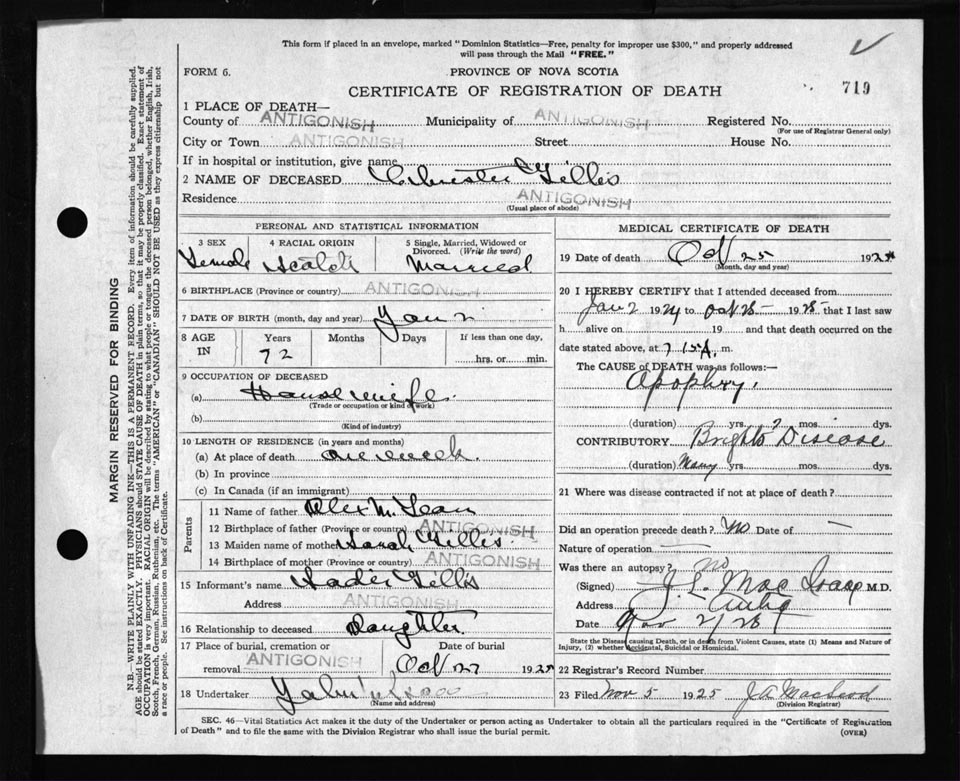 This form if placed in an envelope, marked "Dominion Statistics—Free, penalty for improper use $300," and properly addressed
will pass through the Mail "FREE."
FORM 6.
PROVINCE OF NOVA SCOTIA
719
CERTIFICATE OF REGISTRATION OF DEATH
1 PLACE OF DEATH—
County of ANTIGONISH Municipality of ANTIGONISH Registered No.
(For use of Registrar General only)
City or Town ANTIGONISH Street House No.
If in hospital or institution, give name
2 NAME OF DECEASED Gillis
Residence ANTIGONISH
(Usual place of abode)
PERSONAL AND STATISTICAL INFORMATION
3 SEX 4 RACIAL ORIGIN 5 Single, Married, Widowed or
Divorced. (Write the word)
Female Scotch Married
6 BIRTHPLACE (Province or country) ANTIGONISH
7 DATE OF BIRTH (month, day and year) Jan
8 AGE IN Years Months Days If less than one day,
72 hrs. or min.
9 OCCUPATION OF DECEASED
(a) Housewife
(Trade or occupation or kind of work)
(b)
(Kind of industry)
10 LENGTH OF RESIDENCE (in years and months)
(a) At place of death one week
(b) In province
(c) In Canada (if an immigrant)
Parents
11 Name of father Alex McLean
12 Birthplace of father (Province or country) ANTIGONISH
13 Maiden name of mother Sarah Gillis
14 Birthplace of mother (Province or country) ANTIGONISH
15 Informant's name Sadie Gillis
Address ANTIGONISH
16 Relationship to deceased Daughter
17 Place of burial, cremation or Date of burial
removal ANTIGONISH Oct 27 1925
18 Undertaker
(Name and address)
MEDICAL CERTIFICATE OF DEATH
19 Date of death Oct 25 192
(Month, day and year)
20 I HEREBY CERTIFY that I attended deceased from
Jan 2 1924 to Oct 25 1925 that I last saw
h alive on 19 and that death occurred on
date stated above, at 7 15 A. m.
The CAUSE of DEATH was as follows:—
Apoplexy.
(duration) yrs. ? mos. dys.
CONTRIBUTORY Brights Disease
(duration) Many yrs. mos. dys.
21 Where was disease contracted if not at place of death?
Did an operation precede death? No Date of —
Nature of operation —
Was there an autopsy? no
(Signed) J. L. Mac Isaac M.D.
Address Antig
Date Nov 2/25
State the Disease causing Death, or in death from Violent Causes, state (1) Means and Nature of
Injury, (2) whether Accidental, Suicidal or Homicidal.
22 Registrar's Record Number
23 Filed Nov 5 1925 J A MacLeod
(Division Registrar)
SEC. 46—Vital Statistics Act makes it the duty of the Undertaker or person acting as Undertaker to obtain all the particulars required in the "Certificate of Registration
of Death" and to file the same with the Division Registrar who shall issue the burial permit.
(OVER)
MARGIN RESERVED FOR BINDING
N.B.—WRITE PLAINLY WITH UNFADING INK—THIS IS A PERMANENT RECORD. Every item of information should be carefully supplied.
AGE should be stated EXACTLY. PHYSICIANS should STATE CAUSE OF DEATH in plain terms, so that it may be properly classified. Exact statement of
OCCUPATION is very important. RACIAL ORIGIN will be described by stating to what people or tongue the deceased person belonged, whether English, Irish,
Scotch, French, German, Russian, Ruthenian, etc. The terms "AMERICAN" or "CANADIAN" SHOULD NOT BE USED as they express citizenship but not
a race or people. See instructions on back of Certificate.